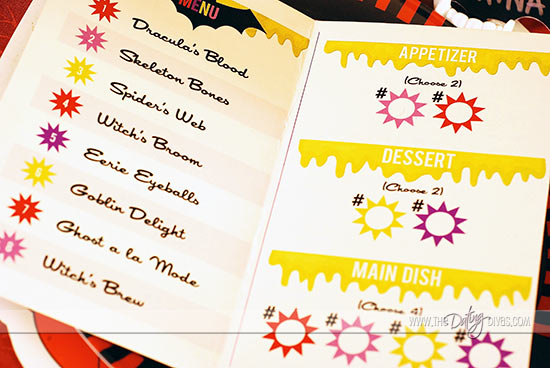 MENU
1 Dracula's Blood
2 Skeleton Bones
3 Spider's Web
4 Witch's Broom
5 Eerie Eyeballs
6 Goblin Delight
7 Ghost a la Mode
8 Witch's Brew
APPETIZER
(Choose 2)
# #
DESSERT
(Choose 2)
# #
MAIN DISH
(Choose 4)
# # # #
WWW.THE Dating DIVAS.COM